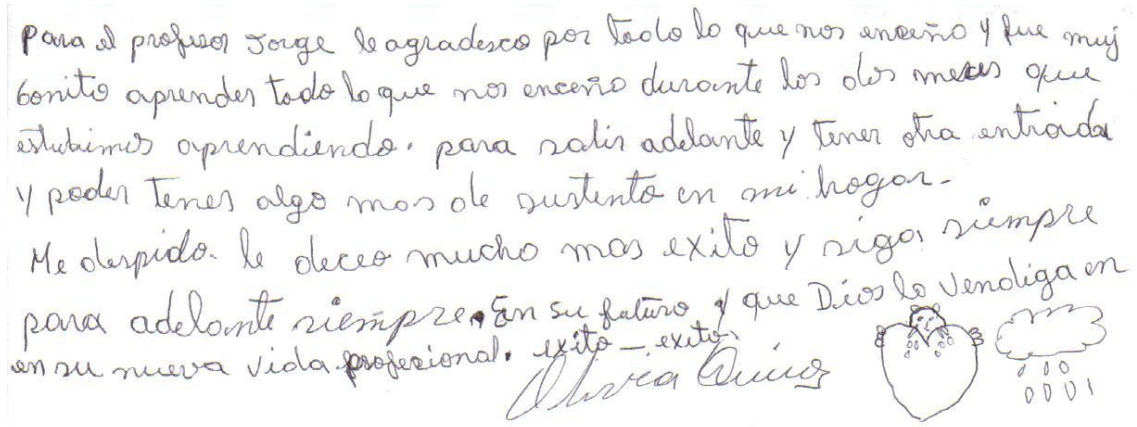 Para el profesor Jorge le agradesco por todo lo que nos enceño y fue muy
bonito aprender todo lo que nos enceño durante los dos meses que
estubimos aprendiendo. para salir adelante y tener otra entrada
y poder tener algo mas de sustento en mi hogar.
Me despido. le deceo mucho mas exito y siga siempre
para adelante siempre. En su futuro y que Dios lo vendiga en
en su nueva vida profecional. exito - exito.